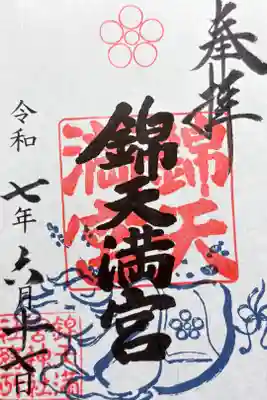 奉拝
錦天満宮
錦天満宮
令和七年六月十七日